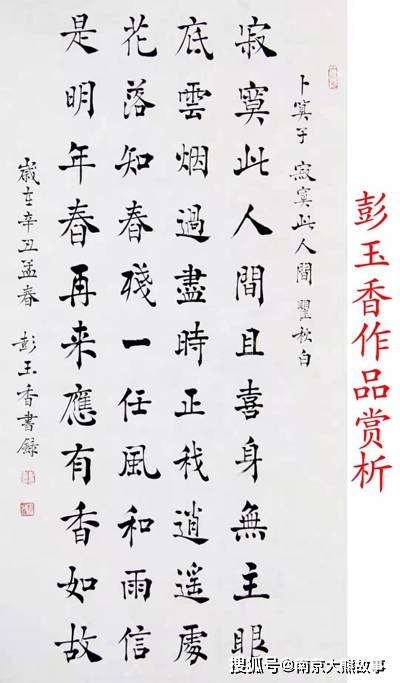 卜算子 寂寞此人間 瞿秋白
寂寞此人間且喜身無主眼
底雲烟過盡時正我逍遥處
花落知春殘一任風和雨信
是明年春再来應有香如故
歲在辛丑孟春 彭玉香書録
彭玉香作品赏析
搜狐号@南京大熊故事